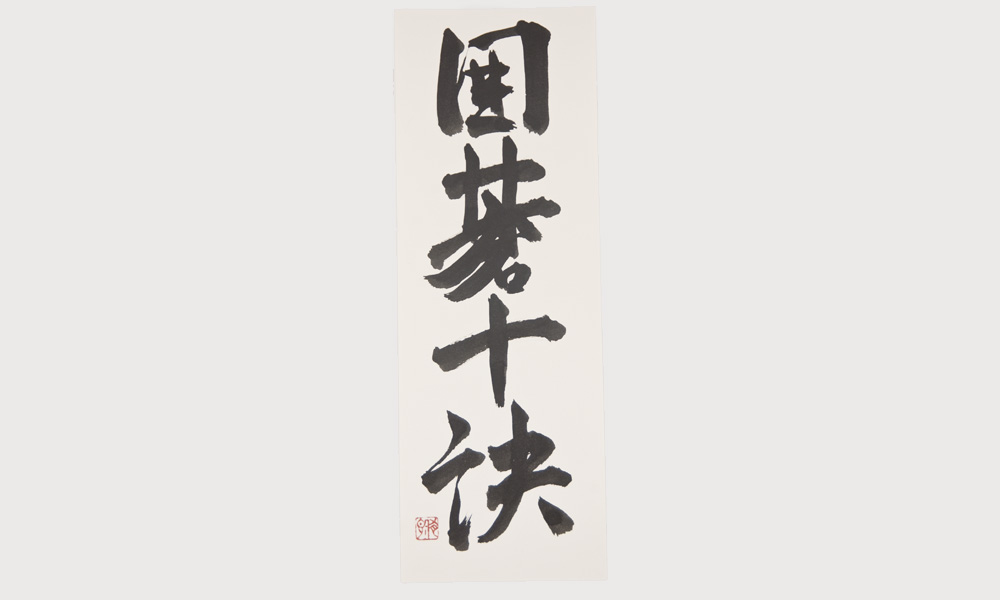 囲碁十訣